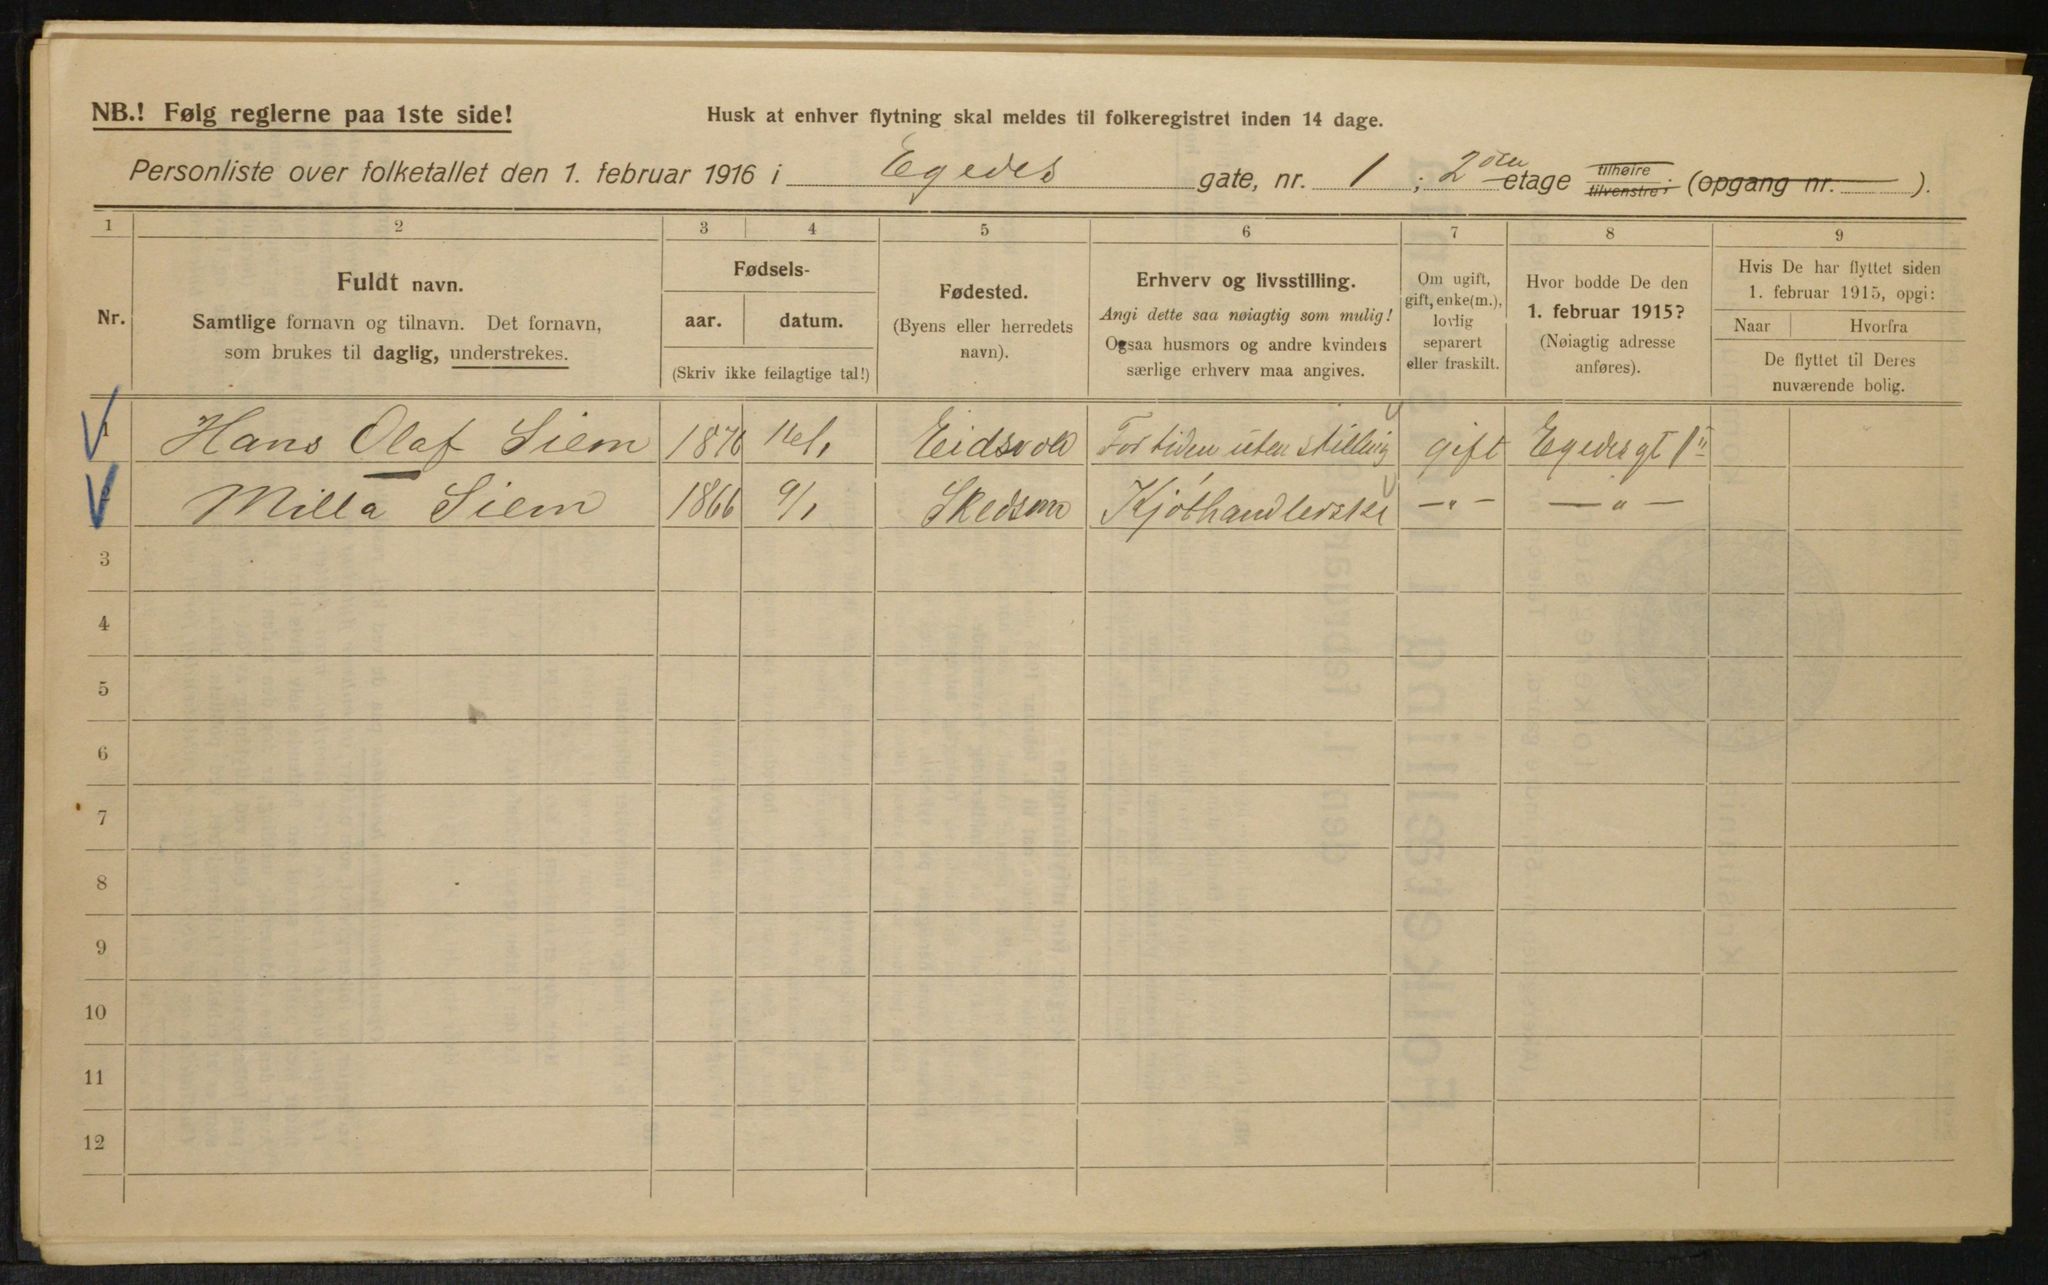 NB.! Følg reglerne paa 1ste side!
Husk at enhver flytning skal meldes til folkeregistret inden 14 dage.
Personliste over folketallet den 1. februar 1916 i Egedes gate, nr. 1 ; 2den etage tilhøire tilvenstre; (opgang nr. ).
1 2 3 4 5 6 7 8 9
Nr.
Fuldt navn.
Samtlige fornavn og tilnavn. Det fornavn,
som brukes til daglig, understrekes.
Fødsels-
aar. datum.
(Skriv ikke feilagtige tal!)
Fødested.
(Byens eller herredets
navn).
Erhverv og livsstilling.
Angi dette saa nøiagtig som mulig!
Ogsaa husmors og andre kvinders
særlige erhverv maa angives.
Om ugift,
gift, enke(m.),
lovlig
separert
eller fraskilt.
Hvor bodde De den
1. februar 1915?
(Nøiagtig adresse
anføres).
Hvis De har flyttet siden
1. februar 1915, opgi:
Naar Hvorfra
De flyttet til Deres
nuværende bolig.
1 Hans Olaf Siem 1876 Eidsvold For tiden uten stilling gift Egedesgt 1
Milla Siem 1866 9/1 Skedsmo —„— —„—
3
4
5
6
7
8
9
10
11
12